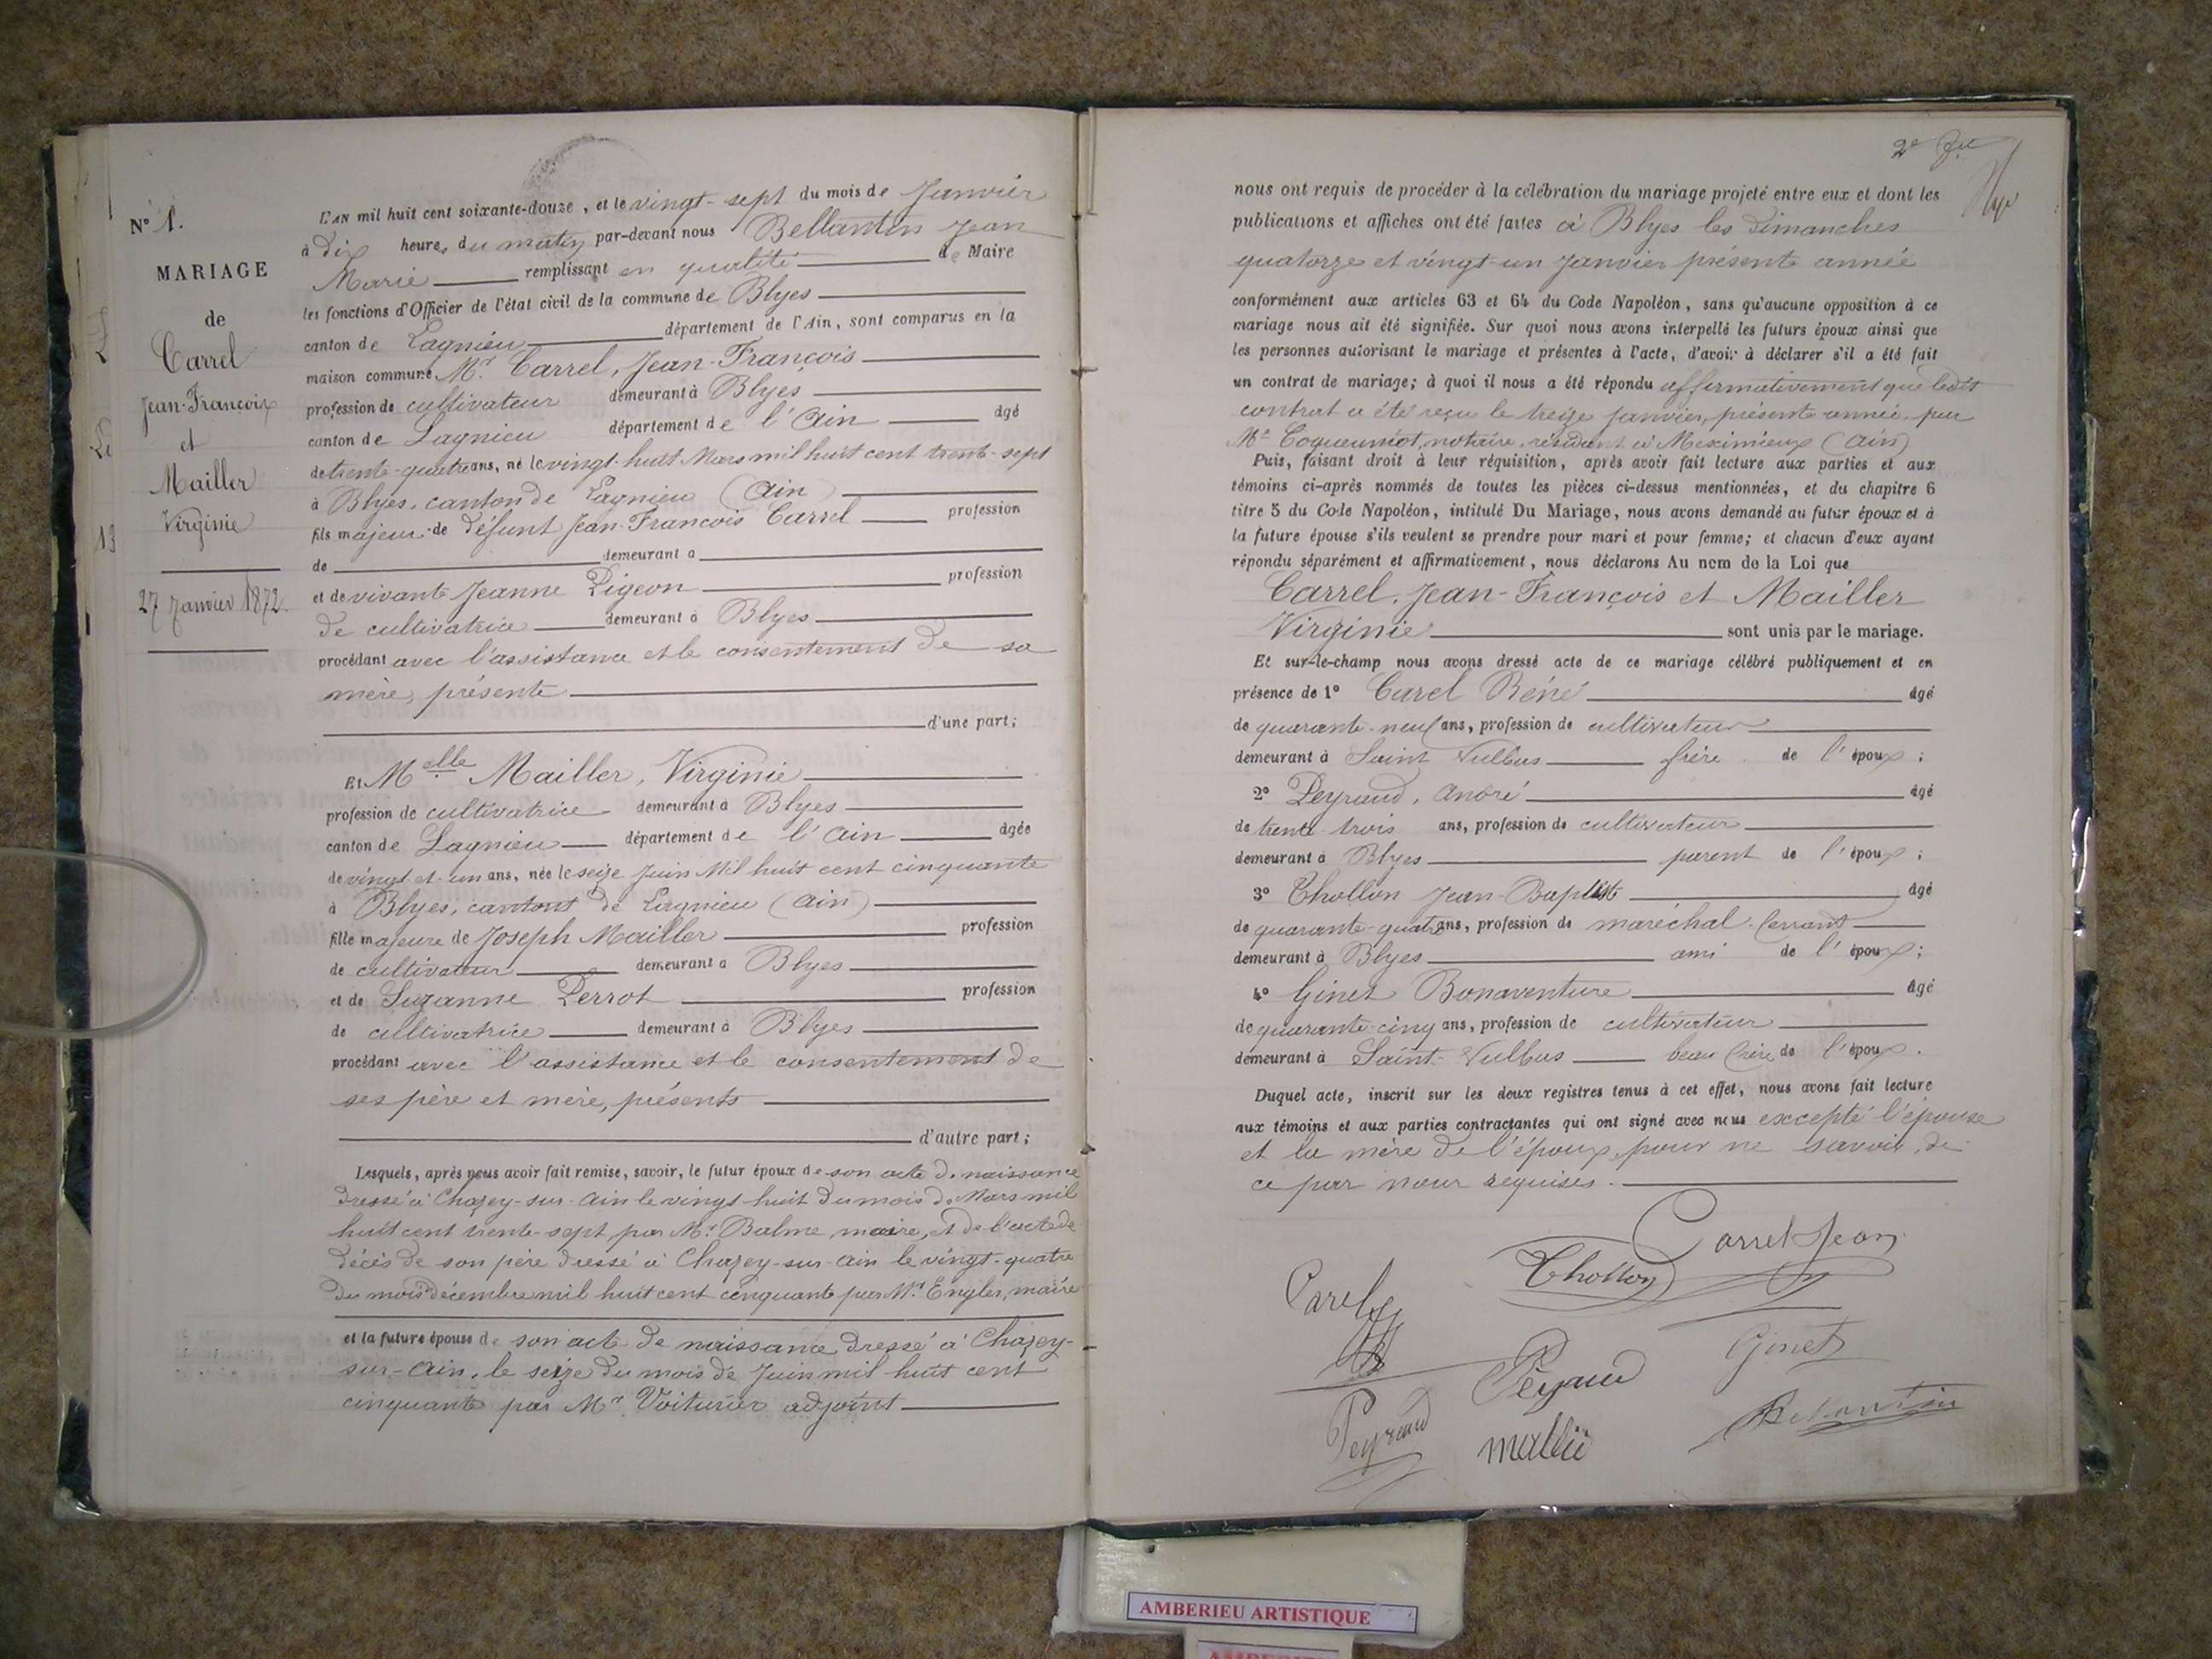 N° 1.
MARIAGE
de
Carrel
Jean-François
et
Mailler
Virginie
27 Janvier 1872.
L'AN mil huit cent soixante-douze, et le vingt-sept du mois de Janvier
à dix heures du matin par-devant nous Bellantin Jean
Marie remplissant en qualité de Maire
les fonctions d'Officier de l'état civil de la commune de Blyes
canton de Lagnieu département de l'Ain, sont comparus en la
maison commune Mr. Carrel, Jean-François
profession de cultivateur demeurant à Blyes
canton de Lagnieu département de l'Ain âgé
de trente-quatre ans, né le vingt-huit Mars mil huit cent trente-sept
à Blyes, canton de Lagnieu (Ain)
fils majeur de défunt Jean-François Carrel profession
de demeurant à
et de vivante Jeanne Pigeon profession
de cultivatrice demeurant à Blyes
procédant avec l'assistance et le consentement de sa
mère, présente
d'une part;
Et Melle Mailler, Virginie
profession de cultivatrice demeurant à Blyes
canton de Lagnieu département de l'Ain âgée
de vingt et un ans, née le seize Juin Mil huit cent cinquante
à Blyes, canton de Lagnieu (Ain)
fille majeure de Joseph Mailler profession
de cultivateur demeurant à Blyes
et de Suzanne Perrot profession
de cultivatrice demeurant à Blyes
procédant avec l'assistance et le consentement de
ses père et mère, présents
d'autre part;
Lesquels, après nous avoir fait remise, savoir, le futur époux de son acte de naissance
dressé à Chazey-sur-Ain le vingt-huit du mois de Mars mil
huit cent trente-sept par Mr. Balme maire, et de l'acte de
décès de son père dressé à Chazey-sur-Ain le vingt-quatre
du mois décembre mil huit cent cinquante par Mr. Engler, maire
et la future épouse de son acte de naissance dressé à Chazey-
sur-Ain, le seize du mois de Juin mil huit cent
cinquante par Mr. Voiturier adjoint
2e
nous ont requis de procéder à la célébration du mariage projeté entre eux et dont les
publications et affiches ont été faites à Blyes les Dimanches
quatorze et vingt-un Janvier présente année
conformément aux articles 63 et 64 du Code Napoléon, sans qu'aucune opposition à ce
mariage nous ait été signifiée. Sur quoi nous avons interpellé les futurs époux ainsi que
les personnes autorisant le mariage et présentes à l'acte, d'avoir à déclarer s'il a été fait
un contrat de mariage; à quoi il nous a été répondu affirmativement que ledit
contrat a été reçu le treize Janvier, présente année, par
Me Coqueuniot, notaire, résidant à Meximieux (Ain)
Puis, faisant droit à leur réquisition, après avoir fait lecture aux parties et aux
témoins ci-après nommés de toutes les pièces ci-dessus mentionnées, et du chapitre 6
titre 5 du Code Napoléon, intitulé Du Mariage, nous avons demandé au futur époux et à
la future épouse s'ils veulent se prendre pour mari et pour femme; et chacun d'eux ayant
répondu séparément et affirmativement, nous déclarons Au nom de la Loi que
Carrel, Jean-François et Mailler
Virginie sont unis par le mariage.
Et sur-le-champ nous avons dressé acte de ce mariage célébré publiquement et en
présence de 1° Carel Réné âgé
de quarante-neuf ans, profession de cultivateur
demeurant à Saint Vulbas frère de l'époux;
2° Peyraud, André âgé
de trente-trois ans, profession de cultivateur
demeurant à Blyes parent de l'époux;
3° Thollon Jean-Baptiste âgé
de quarante-quatre ans, profession de maréchal-ferrant
demeurant à Blyes ami de l'époux;
4° Ginet Bonaventure âgé
de quarante-cinq ans, profession de cultivateur
demeurant à Saint-Vulbas beau frère de l'époux.
Duquel acte, inscrit sur les deux registres tenus à cet effet, nous avons fait lecture
aux témoins et aux parties contractantes qui ont signé avec nous excepté l'épouse
et la mère de l'époux, pour ne savoir, de
ce par nous requises.
Carrel Jean
Carel
Thollon
Ginet
Peyraud
Peyraud
Bellantin
AMBERIEU ARTISTIQUE